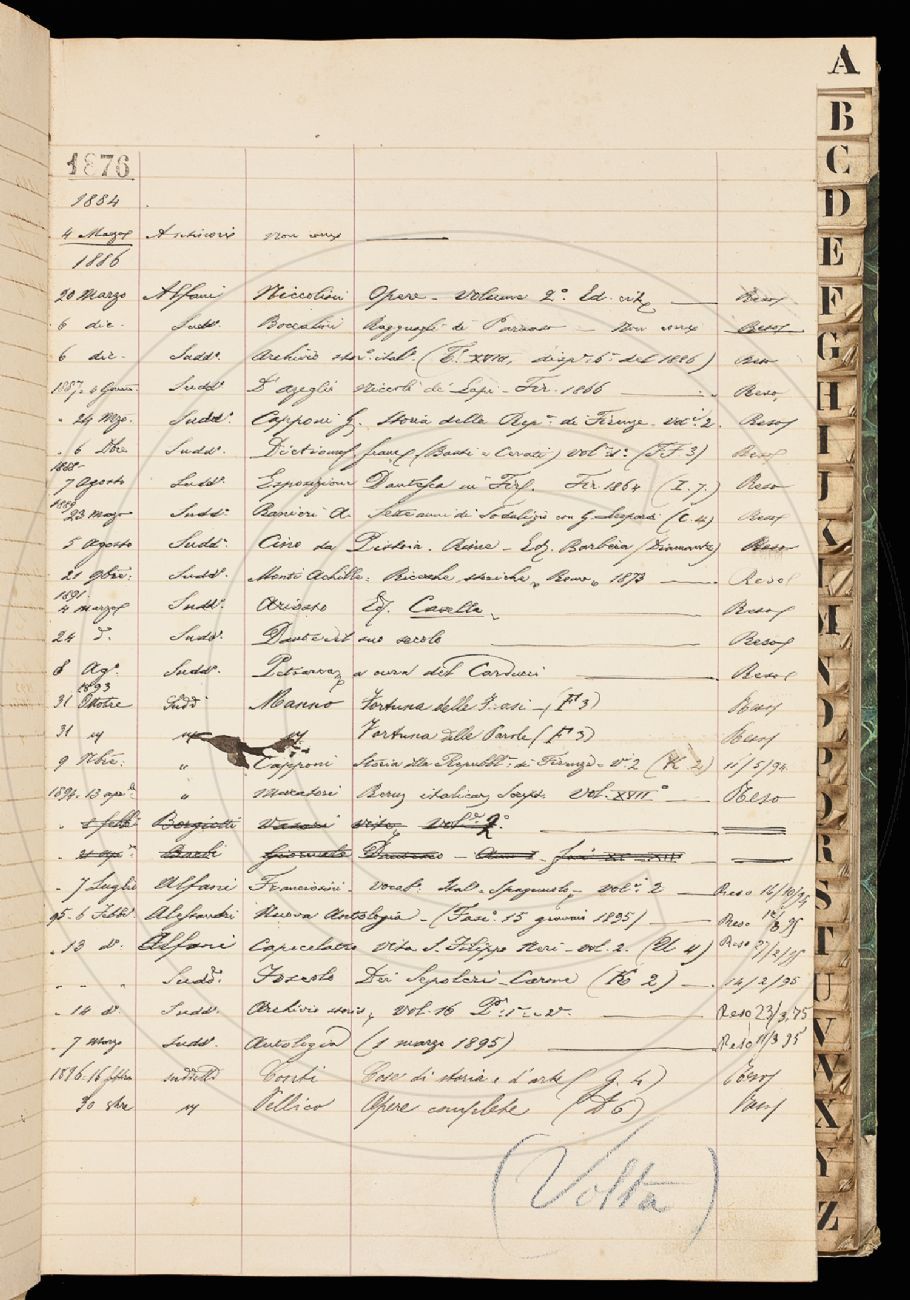 1876
1884
4 Marzo
1886
20 Marzo Alfani Niccolini Opere - Volume 2°. Ed. Reso
6 dic. Sudd°. Boccalini Ragguagli di Parnaso - Reso
6 dic. Sudd°. Archivio stor°. ital°. (T°. XVIII, disp°. 6°. del 1886) Reso
1887 - Sudd°. D'azeglio Niccolò de' Lapi - Fir. 1866 Reso
" 24 Mzo. Sudd°. Capponi G. Storia della Rep°. di Firenze. vol°. 2. Reso
" 6 Sudd°. (FF 3) Reso
1888
7 agosto Sudd°. Esposizione Dantesca in Fir. Fir. 1864 (I. 7.) Reso
1889
23 Sudd°. Ranieri A. Sette anni di Sodalizio con G. Leopardi (C. 4) Reso
5 agosto Sudd°. Cino da Pistoia. Rime - Ed. Barbèra (Diamante) Reso
21 9bre. Sudd°. Monti Achille. Ricerche storiche, Roma, 1873 Reso
1891
4 marzo Sudd°. Ariosto Ed. Casella. Reso
24 d°. Sudd°. Dante e il suo secolo Reso
8 Ag°. Sudd°. Petrarca, a cura del Carducci Reso
1893
31 Ottobre Sudd Manno Fortuna delle Frasi - (F 3) Reso
31 " " " Fortuna delle Parole (F 3) Reso
9 Nbre. " Capponi Storia della Repubbl°. di Firenze - V° 2 (K 2) 11/5/94
1894. 13 apr°. " Muratori Rerum italicarum Script. Vol. XVII° Reso
" Borgiotti Vasari vite vol° 2°
" Barbi Giornale Dantesco - Anno I. fasc XI - XII
" 7 Luglio Alfani Franciosini - Vocab°. Ital. - Spagnuolo - vol°. 2 Reso 16/10/94
95. 6 Febb°. Alessandri Nuova Antologia - (Fasc°. 15 gennaio 1895) Reso 12/3/95
" 13 d°. Alfani Capecelatro Vita S. Filippo Neri - vol. 2. (U 4) Reso 27/2/95
" " " Sudd°. Foscolo Dei Sepolcri - Carme (K 2) 14/2/95
" 14 d°. Sudd°. Archivio storico, vol. 16 Reso 23/3/95
" 7 marzo Sudd°. Antologia (1 marzo 1895) Reso 11/3 95
1896. 16 Conti Cose di storia e d'arte (G. 4) Reso
30 " Pellico Opere complete (D 6)
(Volta)
A
B
C
D
E
F
G
H
I
J
K
L
M
N
O
P
Q
R
S
T
U
V
X
Y
Z